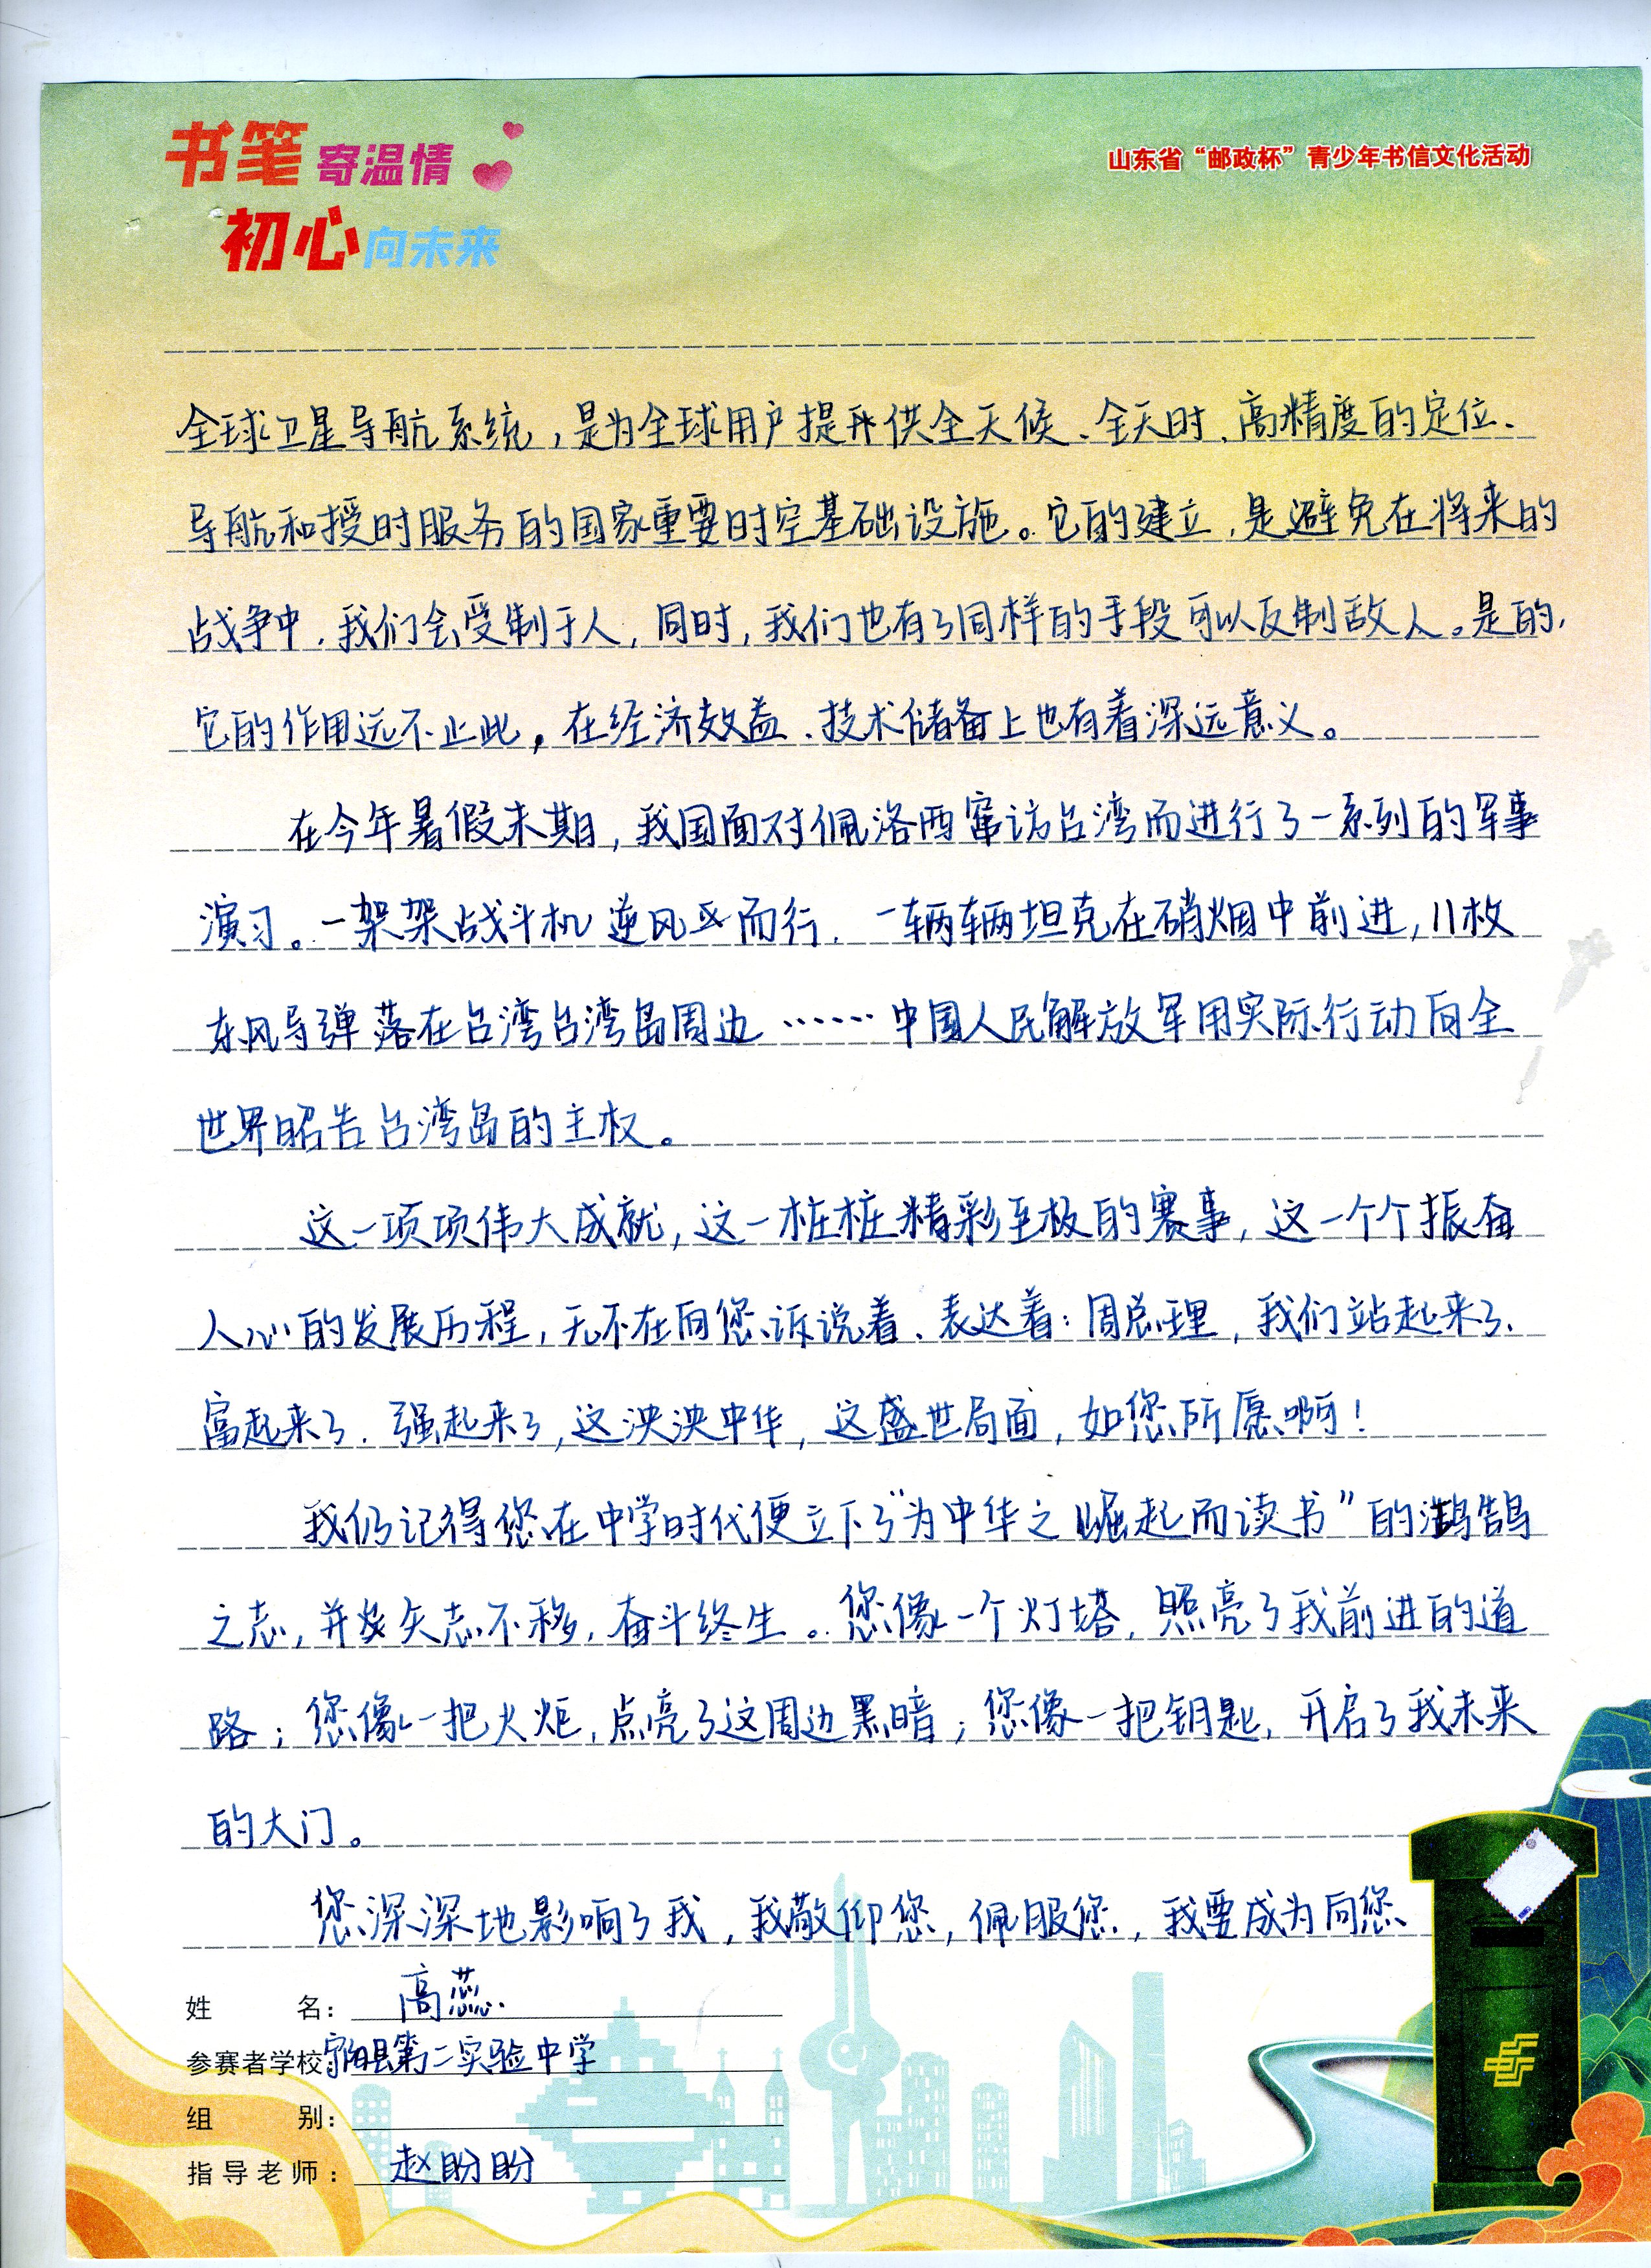 书笔寄温情
初心向未来
山东省“邮政杯”青少年书信文化活动
全球卫星导航系统，是为全球用户提供全天候、全天时、高精度的定位、
导航和授时服务的国家重要时空基础设施。它的建立，是避免在将来的
战争中，我们会受制于人，同时，我们也有了同样的手段可以反制敌人。是的，
它的作用远不止此，在经济效益、技术储备上也有着深远意义。
在今年暑假末期，我国面对佩洛西窜访台湾而进行了一系列的军事
演习。一架架战斗机逆风而行，一辆辆坦克在硝烟中前进，11枚
东风导弹落在台湾台湾岛周边……中国人民解放军用实际行动向全
世界昭告台湾岛的主权。
这一项项伟大成就，这一桩桩精彩至极的赛事，这一个个振奋
人心的发展历程，无不在向您诉说着、表达着：周总理，我们站起来了、
富起来了、强起来了，这泱泱中华，这盛世局面，如您所愿啊！
我仍记得您在中学时代便立下了“为中华之崛起而读书”的鸿鹄
之志，并矢志不移，奋斗终生。您像一个灯塔，照亮了我前进的道
路；您像一把火炬，点亮了这周边黑暗；您像一把钥匙，开启了我未来
的大门。
您深深地影响了我，我敬仰您，佩服您，我要成为向您
姓名：高蕊
参赛者学校：宁阳县第二实验中学
组别：
指导老师：赵盼盼